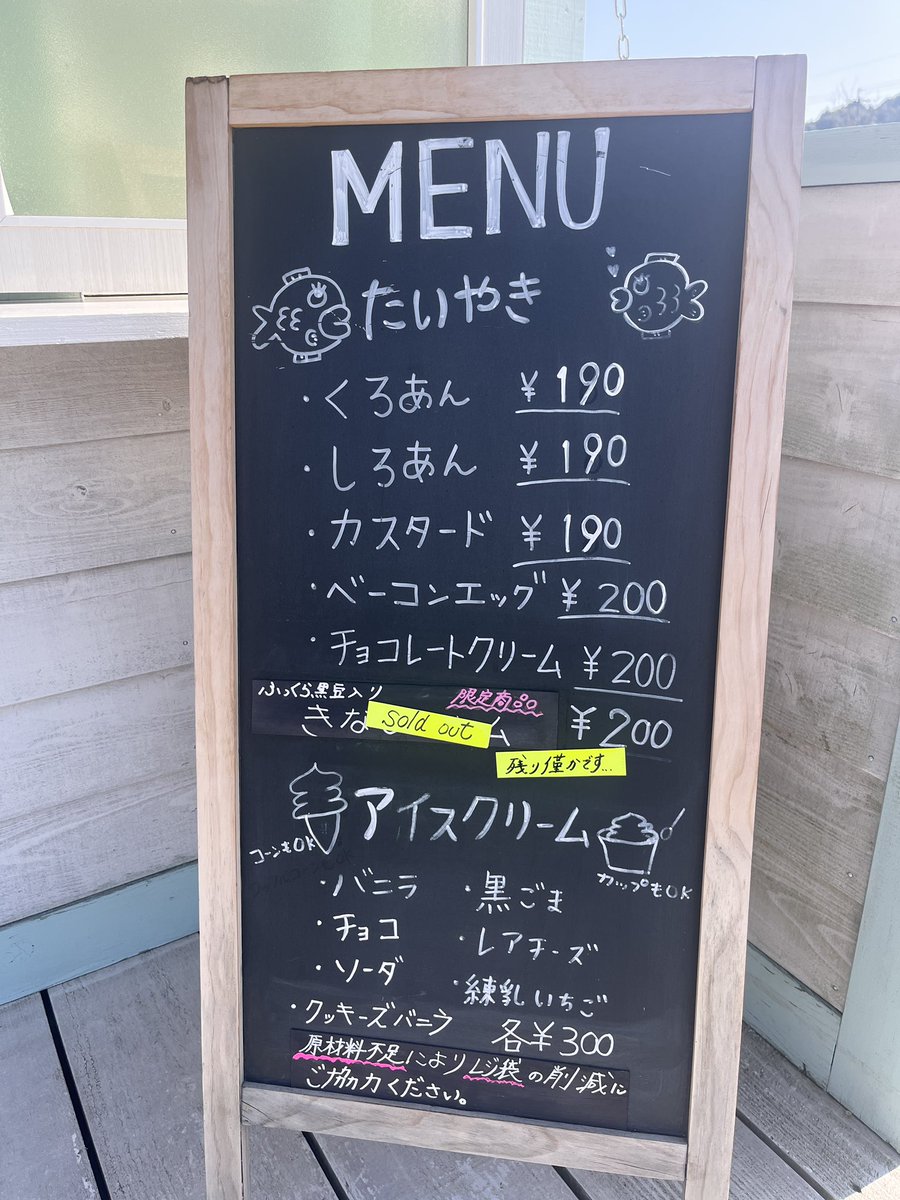 MENU
たいやき
・くろあん ¥190
・しろあん ¥190
・カスタード ¥190
・ベーコンエッグ ¥200
・チョコレートクリーム ¥200
ふっくら黒豆入り 限定商品
きな sold out ム ¥200
残り僅かです...
アイスクリーム
コーンもOK
カップもOK
・バニラ ・黒ごま
・チョコ ・レアチーズ
・ソーダ ・練乳いちご
・クッキーズバニラ 各¥300
原材料不足によりレジ袋の削減に
ご協力ください。